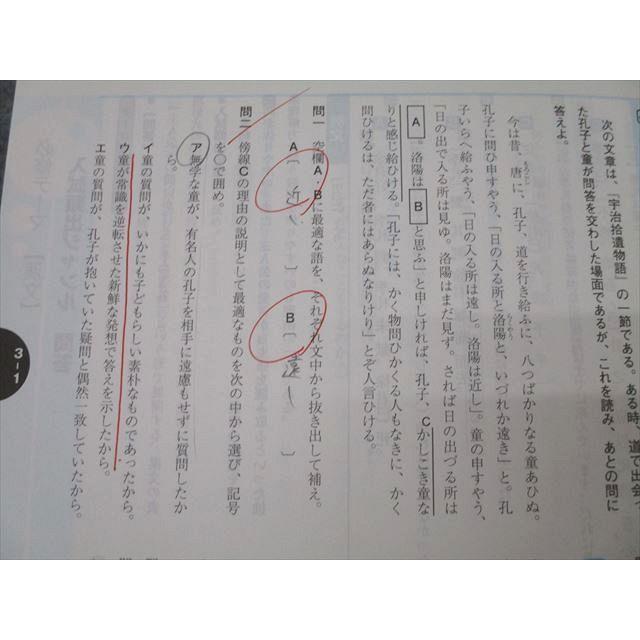 次の文章は、『宇治拾遺物語』の一節である。ある時、道で出会っ
た孔子と童が問答を交わした場面であるが、これを読み、あとの問に
答えよ。
今は昔、唐に、孔子、道を行き給ふに、八つばかりなる童あひぬ。
孔子に問ひ申すやう、「日の入る所と洛陽と、いづれか遠き」と。孔
子いらへ給ふやう、「日の入る所は遠し。洛陽は近し」。童の申すやう、
「日の出で入る所は見ゆ。洛陽はまだ見ず。されば日の出づる所は
A。洛陽はBと思ふ」と申しければ、孔子、Cかしこき童な
りと感じ給ひける。「孔子には、かく物問ひかくる人もなきに、かく
問ひけるは、ただ者にはあらぬなりけり」とぞ人言ひける。
問一 空欄A・Bに最適な語を、それぞれ文中から抜き出して補え。
A〔近し〕 B〔遠し〕
問二 傍線Cの理由の説明として最適なものを次の中から選び、記号
を○で囲め。
ア無学な童が、有名人の孔子を相手に遠慮もせずに質問したか
ら。
イ童の質問が、いかにも子どもらしい素朴なものであったから。
ウ童が常識を逆転させた新鮮な発想で答えを示したから。
エ童の質問が、孔子が抱いていた疑問と偶然一致していたから。
3-1